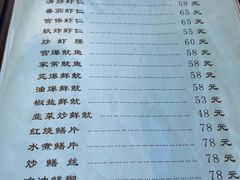 清炒虾仁 58元
番茄虾仁 65元
宫保虾仁 65元
软炸虾仁 55元
炒虾腰 60元
宫爆鱿鱼 58元
家常鱿鱼 58元
芫爆鲜鱿 58元
油爆鲜鱿 58元
椒盐鲜鱿 53元
韭菜炒鲜鱿 48元
红烧鳝片 78元
水煮鳝片 78元
炒鳝丝 78元
鳝糊 78元